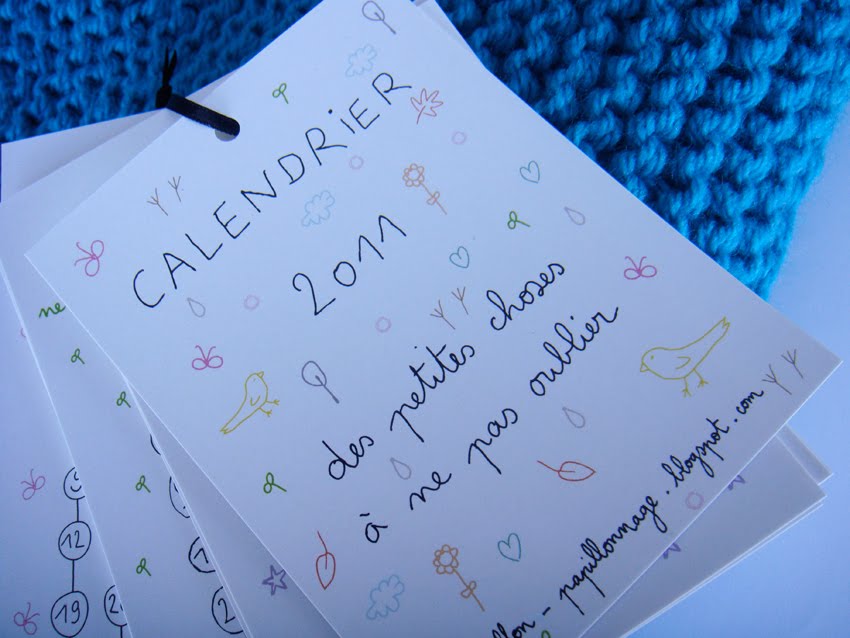 CALENDRiER
2011
des petites choses
à ne pas oublier
- papillonnage.blogspot.com
ne
12
19